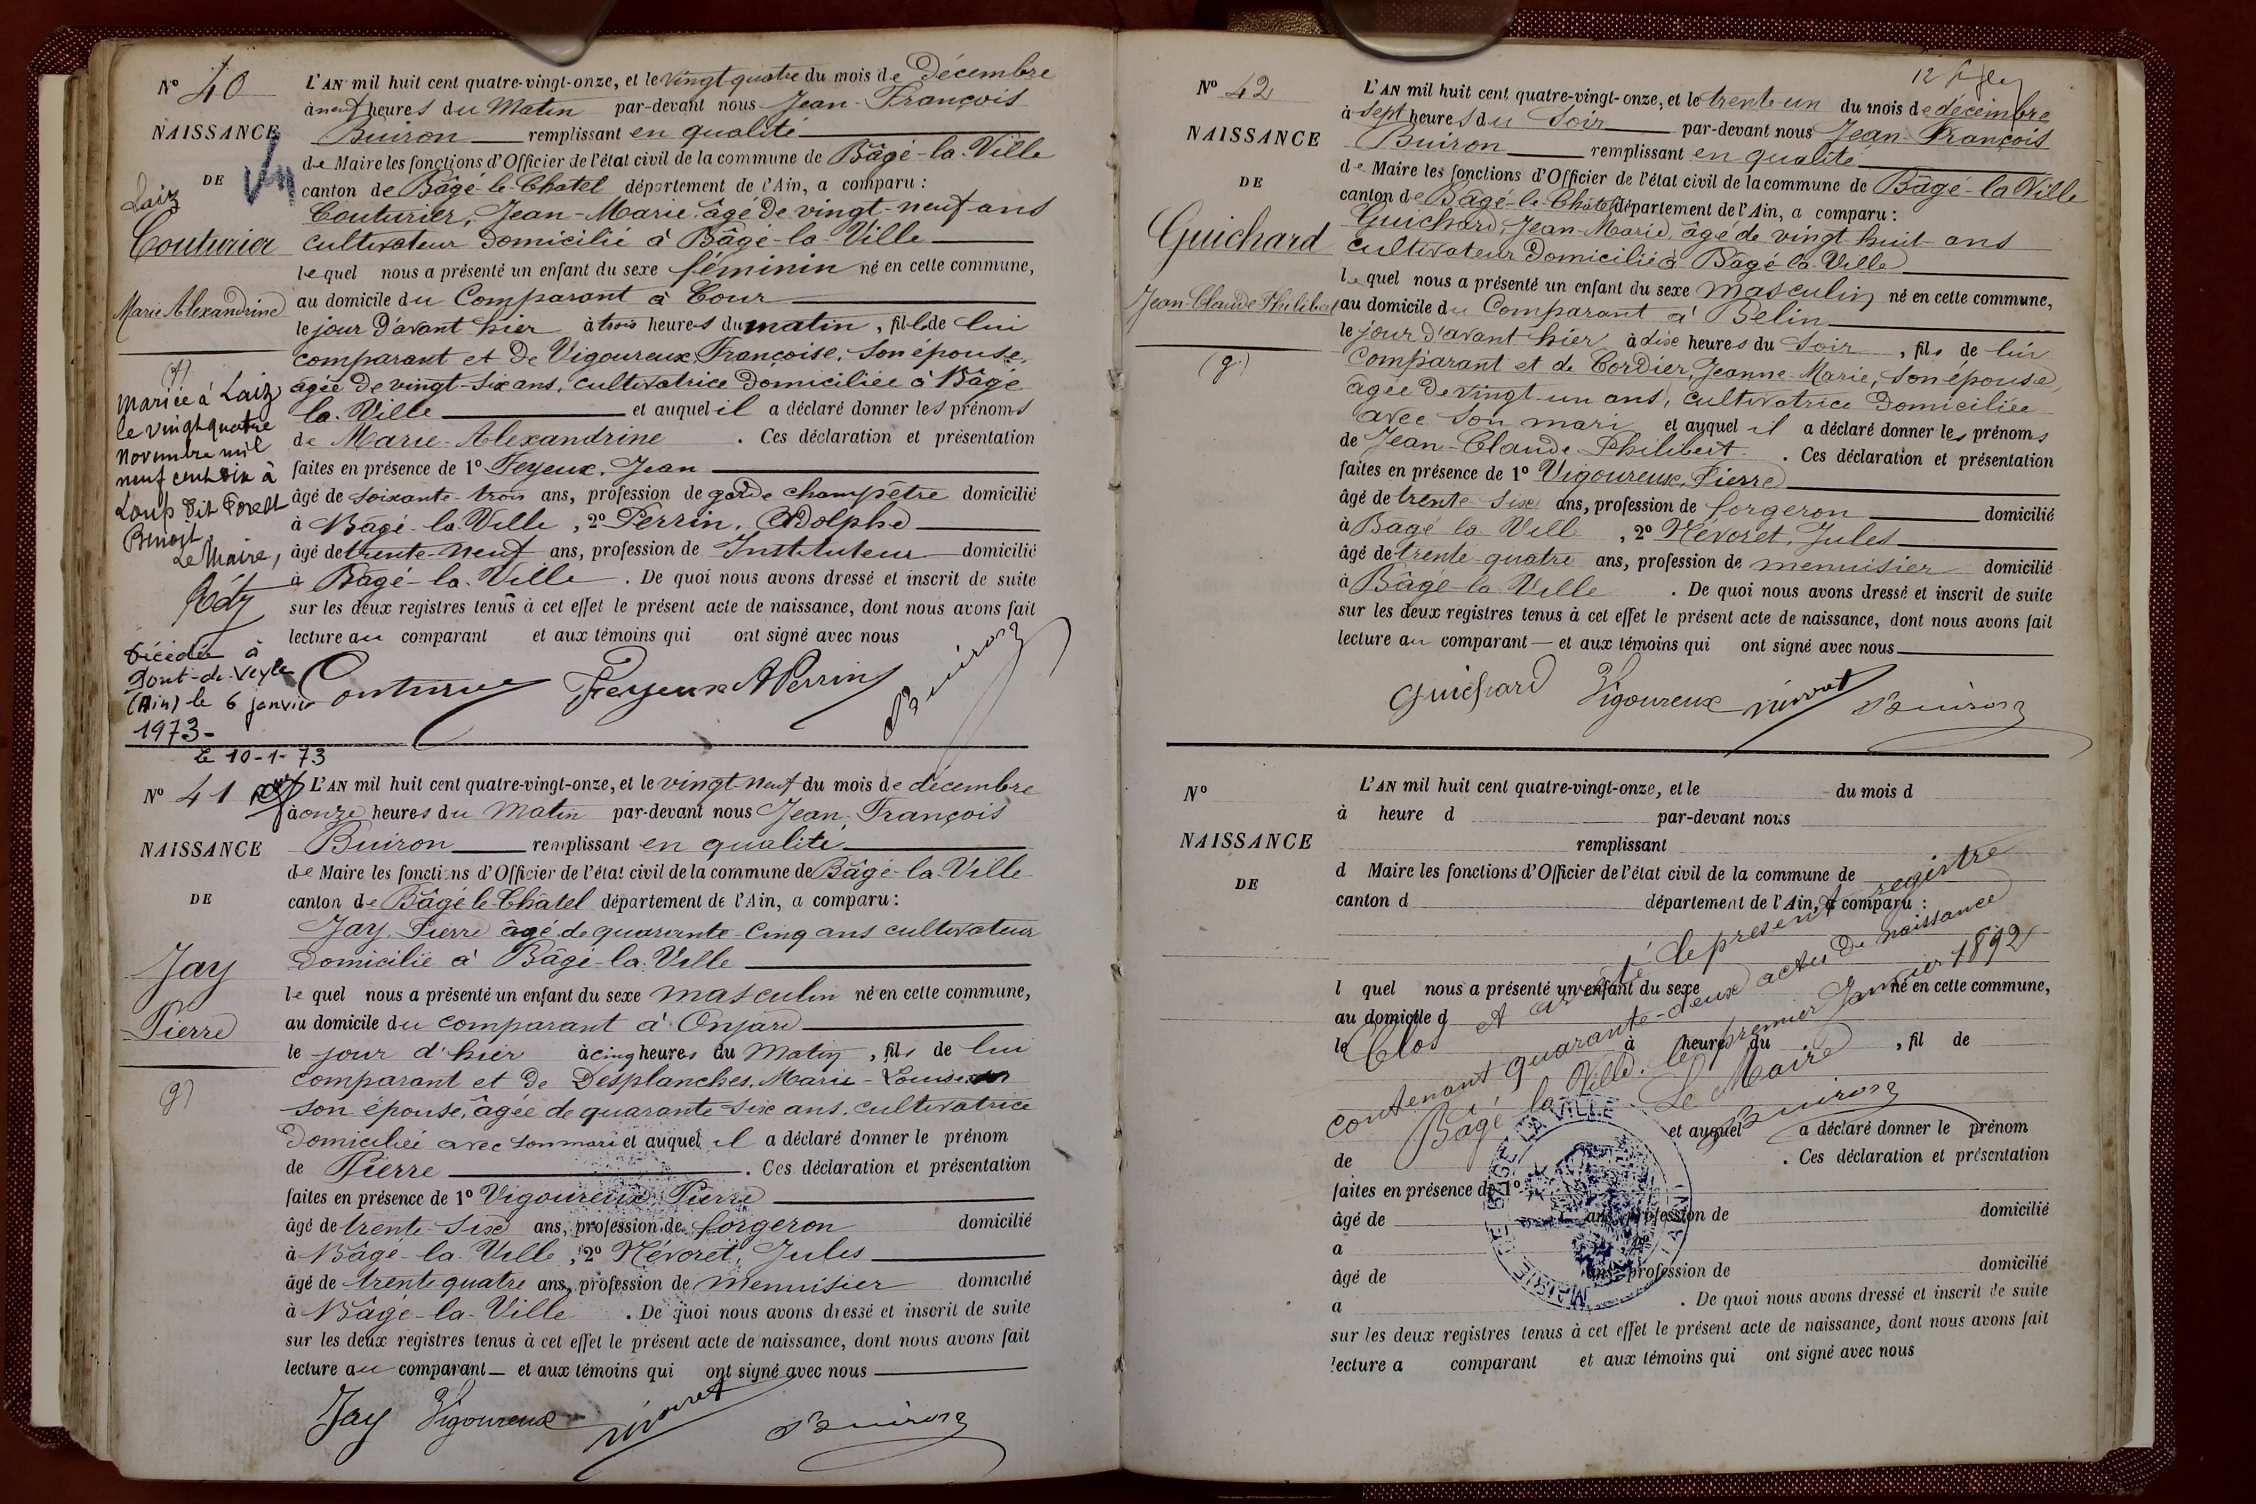 N° 40
NAISSANCE
DE
Laiz
Couturier
Marie Alexandrine
(f)
mariée à Laiz
le vingt quatre
novembre mil
neuf cent dix à
Loup dit Forest
Benoit
Le Maire,
Décédée à
Pont-de-Veyle
(Ain) le 6 janvier
1973-
le 10-1-73
L'AN mil huit cent quatre-vingt-onze, et le vingt quatre du mois de Décembre
à neuf heures du Matin par-devant nous Jean-François
Buiron remplissant en qualité
de Maire les fonctions d'Officier de l'état civil de la commune de Bâgé-la-Ville
canton de Bâgé-le-Chatel département de l'Ain, a comparu :
Couturier, Jean-Marie, âgé de vingt-neuf ans
cultivateur domicilié à Bâgé-la-Ville
lequel nous a présenté un enfant du sexe féminin né en cette commune,
au domicile du Comparant à Cour
le jour d'avant hier à trois heures du matin, fille de lui
comparant et de Vigoureux, Françoise, son épouse,
âgée de vingt-six ans, cultivatrice domiciliée à Bâgé
la-Ville et auquel il a déclaré donner les prénoms
de Marie-Alexandrine . Ces déclaration et présentation
faites en présence de 1° Feyeux, Jean
âgé de soixante-trois ans, profession de garde champêtre domicilié
à Bâgé-la-Ville, 2° Perrin, Adolphe
âgé de trente-neuf ans, profession de Instituteur domicilié
à Bâgé-la-Ville . De quoi nous avons dressé et inscrit de suite
sur les deux registres tenus à cet effet le présent acte de naissance, dont nous avons fait
lecture au comparant et aux témoins qui ont signé avec nous
Couturier Feyeux A Perrin Buiron
N° 41
NAISSANCE
DE
Jay
Pierre
g)
L'AN mil huit cent quatre-vingt-onze, et le vingt-neuf du mois de décembre
à onze heures du Matin par-devant nous Jean-François
Buiron remplissant en qualité
de Maire les fonctions d'Officier de l'état civil de la commune de Bâgé-la-Ville
canton de Bâgé-le-Châtel département de l'Ain, a comparu :
Jay, Pierre âgé de quarante-cinq ans cultivateur
domicilié à Bâgé-la-Ville
lequel nous a présenté un enfant du sexe masculin né en cette commune,
au domicile du comparant à Onjard
le jour d'hier à cinq heures du Matin, fils de lui
comparant et de Desplanches, Marie-Louise
son épouse, âgée de quarante six ans, cultivatrice
domiciliée avec son mari et auquel il a déclaré donner le prénom
de Pierre . Ces déclaration et présentation
faites en présence de 1° Vigoureux Pierre
âgé de trente-six ans, profession de forgeron domicilié
à Bâgé-la-Ville, 2° Névoret, Jules
âgé de trente quatre ans, profession de menuisier domicilié
à Bâgé-la-Ville . De quoi nous avons dressé et inscrit de suite
sur les deux registres tenus à cet effet le présent acte de naissance, dont nous avons fait
lecture au comparant et aux témoins qui ont signé avec nous
Jay Vigoureux Névoret Buiron
N° 42
NAISSANCE
DE
Guichard
Jean-Claude Philibert
(g.)
12
L'AN mil huit cent quatre-vingt-onze, et le trente-un du mois de décembre
à sept heures du Soir par-devant nous Jean-François
Buiron remplissant en qualité
de Maire les fonctions d'Officier de l'état civil de la commune de Bâgé-la-Ville
canton de Bâgé-le-Châtel département de l'Ain, a comparu :
Guichard, Jean-Marie, âgé de vingt huit ans
cultivateur domicilié à Bâgé-la-Ville
lequel nous a présenté un enfant du sexe masculin né en cette commune,
au domicile du Comparant à Belin
le jour d'avant hier à dix heures du Soir, fils de lui
comparant et de Cordier, Jeanne-Marie, son épouse,
âgée de vingt-un ans, cultivatrice domiciliée
avec son mari et auquel il a déclaré donner les prénoms
de Jean-Claude-Philibert . Ces déclaration et présentation
faites en présence de 1° Vigoureux, Pierre
âgé de trente-six ans, profession de forgeron domicilié
à Bagé la Ville, 2° Névoret, Jules
âgé de trente-quatre ans, profession de menuisier domicilié
à Bâgé-la-Ville . De quoi nous avons dressé et inscrit de suite
sur les deux registres tenus à cet effet le présent acte de naissance, dont nous avons fait
lecture au comparant et aux témoins qui ont signé avec nous
Guichard Vigoureux Névoret Buiron
N°
NAISSANCE
DE
L'AN mil huit cent quatre-vingt-onze, et le du mois d
à heure d par-devant nous
remplissant
d Maire les fonctions d'Officier de l'état civil de la commune de
canton d département de l'Ain, a comparu :
l quel nous a présenté un enfant du sexe né en cette commune,
au domicile d
le à heure du , fil de
et auquel a déclaré donner le prénom
de . Ces déclaration et présentation
faites en présence de 1°
âgé de ans, profession de domicilié
à , 2°
âgé de ans, profession de domicilié
à . De quoi nous avons dressé et inscrit de suite
sur les deux registres tenus à cet effet le présent acte de naissance, dont nous avons fait
lecture a comparant et aux témoins qui ont signé avec nous
Clos et arrêté le présent registre
contenant quarante-deux actes de naissance
Bâgé la Ville, le premier Janvier 1892
Le Maire
Buiron
MAIRIE DE BÂGÉ LA VILLE (AIN)